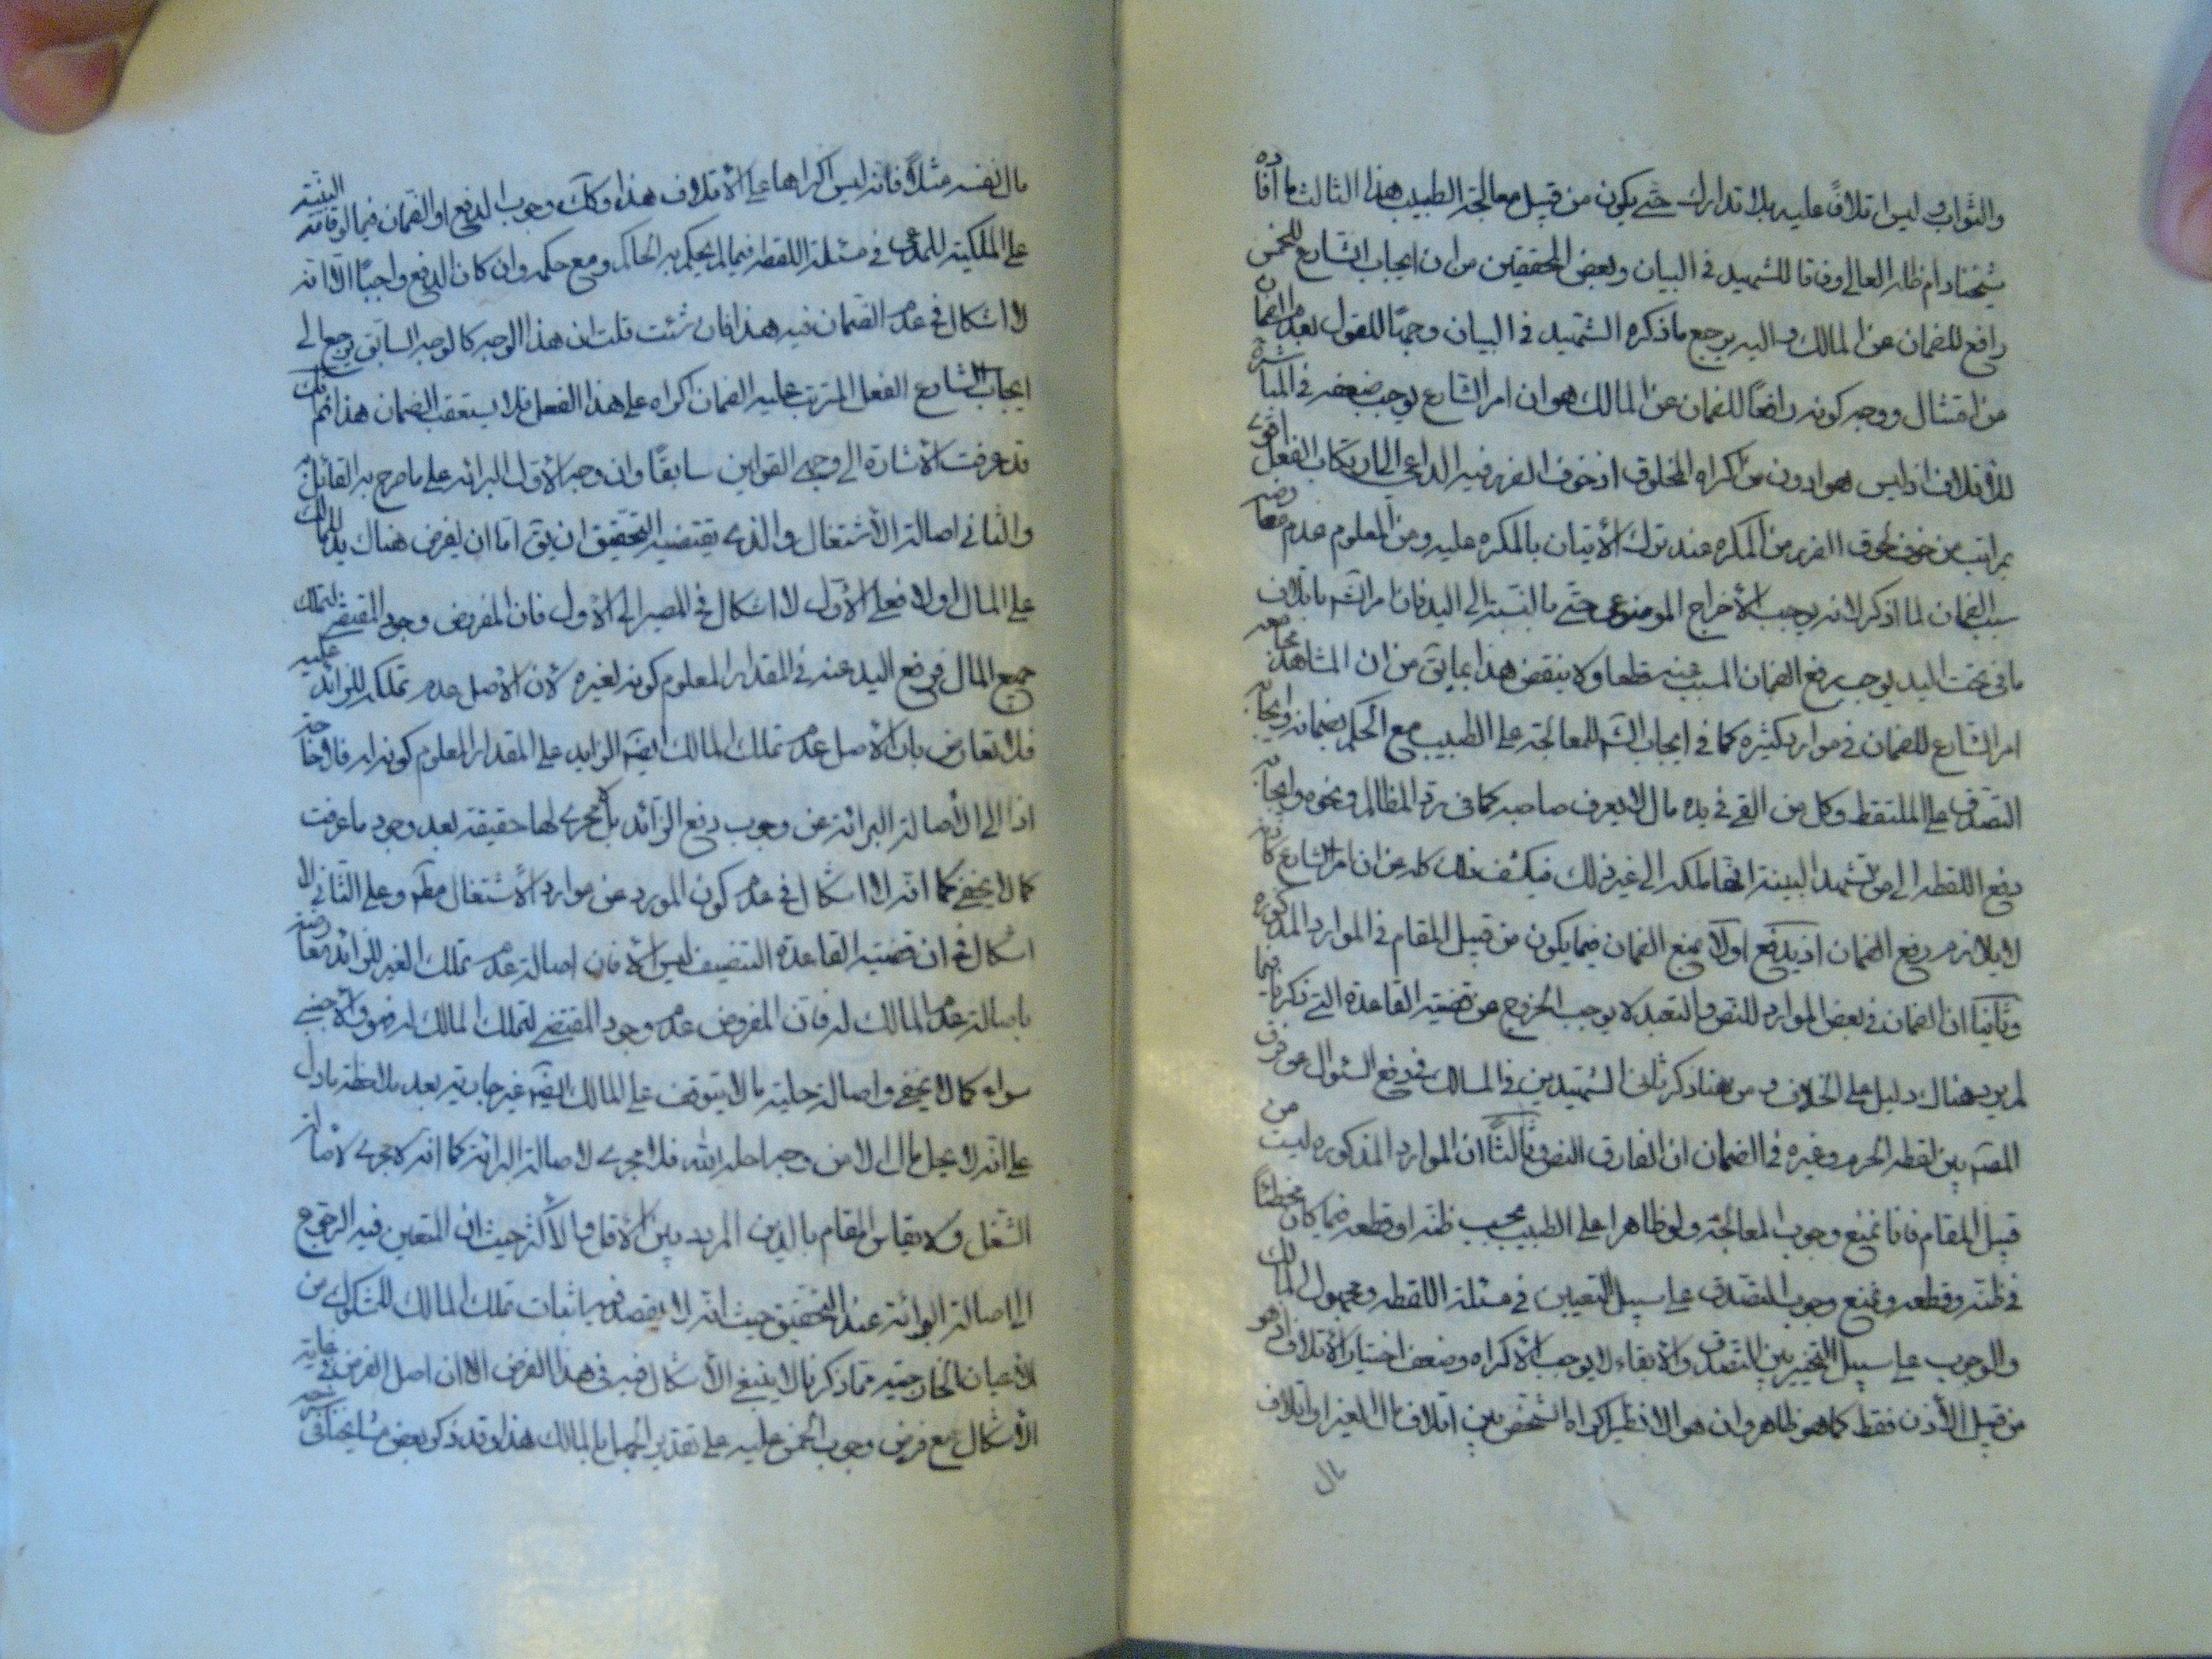 والثواب وليس اتلافاً عليه بلا تدارك حتى يكون من قبيل معالجة الطبيب هذا الثالث ما افاده
شيخنا دام ظله العالي وفاقا للشهيد في البيان وبعض المحققين من ان ايجاب الشارع للخمس
رافع للضمان عن المالك واليه يرجع ما ذكره الشهيد في البيان وجهاً للقول بعدم الضمان
من امتثال ووجه كونه رافعاً للضمان عن المالك هو ان امر الشارع يوجب ضعفه في المباشرة
للاتلاف اذ ليس هو ادون من اكراه المخلوق اذ خوف الضرر فيه الداعي الى ارتكاب الفعل اقوى
بمراتب من خوف لحوق الضرر من المكره عند ترك الاتيان بالمكره عليه ومن المعلوم عدم معارضة
سبب الضمان لما ذكر لانه يوجب الاخراج الموضوعى حتى بالنسبة الى اليد فان امر الشم باتلاف
ما في تحت اليد يوجب رفع الضمان المسبب عنه قطعا ولا ينقض هذا بما يق من ان المشاهد مجامعة
امر الشارع للضمان في موارد كثيرة كما في ايجاب الشم للمعالجة على الطبيب مع الحكم بضمانه وايجابه
التصدق على الملتقط وكل من القى في يده مال لا يعرف صاحبه كما في رد المظالم ونحوه وايجابه
دفع اللقطه الى من تشهد البينة انها ملكه الى غير ذلك فيكشف ذلك كله عن ان امر الشارع كانه
لا يلازم رفع الضمان اذ يدفع اولا بمنع الضمان فيما يكون من قبيل المقام في الموارد المذكوره
وثانيا ان الضمان في بعض الموارد للنص والتعبد لا يوجب الخروج عن قضية القاعدة التي ذكرنا فيما
لم يرد هناك دليل على الخلاف ومن هنا ذكر ثاني الشهيدين في المسالك في دفع السئوال عن فرق
المصم بين لقطه الحرم وغيره في الضمان ان الفارق النص وثالثاً ان الموارد المذكوره ليست من
قبيل المقام فانا نمنع وجوب المعالجة ولو ظاهرا على الطبيب بحسب ظنه او قطعه فيما كان مخطئاً
في ظنه وقطعه ونمنع وجوب التصدق على سبيل التعيين في مسئلة اللقطه ومجهول المالك
والوجوب على سبيل التخيير بين التصدق والابقاء لا يوجب الاكراه وضعف اختيار الاتلاف اذ هو
من قبيل الاذن فقط كما هو ظاهر وان هو الا نظير اكراه الشخص بين اتلاف مال الغير او اتلاف
مال
مال نفسه مثلاً فانه ليس اكراها على الاتلاف هذا وكك وجوب الدفع او الضمان فيما لو قامت البينة
على الملكية للمدعى في مسئلة اللقطه فيما لم يحكم به الحاكم ومع حكمه وان كان الدفع واجباً الا انه
لا اشكال في عدم الضمان فيه هذا فان شئت قلت ان هذا الوجه كالوجه السابق يرجع الى
ايجاب الشارع الفعل المترتب عليه الضمان اكراه على هذا الفعل فلا يستعقب الضمان هذا ثم انك
قد عرفت الاشارة الى وجهى القولين سابقاً وان وجه الاول البرائه على ما صرح به القائل به
والثاني اصالة الاشتغال والذى يقتضيه التحقيق ان يق اما ان يفرض هناك يد للمالك
على المال اولا فعلى الاول لا اشكال في المصير الى الاول فان المفروض وجود المقتضى لتملك
جميع المال في رفع اليد عنه في المقدار المعلوم كونه لغيره لان الاصل عدم تملكه للزائد عليه
فلا تعارض بان الاصل عدم تملك المالك ايضم الزايد على المقدار المعلوم كونه له فلا حاجة
اذا الى الاصالة البرائة عن وجوب دفع الزائد بل لا مجرى لها حقيقة بعد وجود ما عرفت
كما لا يخفى كما انه لا اشكال في عدم كون المورد عن موارد الاشتغال مطم وعلى الثاني لا
اشكال في ان قضية القاعدة التنصيف ليس الا فان اصالة عدم تملك الغير للزائد معارضة
باصالة عدم المالك له فان المفروض عدم وجود المقتضى لتملك المالك له فهو والاجنبى
سواء كما لا يخفى واصالة حلية ما لا يتوقف على المالك ايضم غير جارية بعد ملاحظة ما دل
على انه لا يحل مال الا من وجه احله الله فلا مجرى لاصالة البرائة كما انه لا مجرى لاصالة
الشغل ولا يقاس المقام بالدين المردد بين الاقل والاكثر حيث ان المتعين فيه الرجوع
الى اصالة البرائة عند التحقيق حيث انه لا يقصد فيه اثبات تملك المالك للمشكوك من
الاعيان الخارجيه فما ذكرنا لا ينبغي الاشكال فيه في هذا الفرض الا ان اصل الفرض في غاية
الاشكال مع فرض وجوب الخمس عليه على تقدير الجهل بالمالك هذا وقد ذكر بعض مشايخنا في شرحه